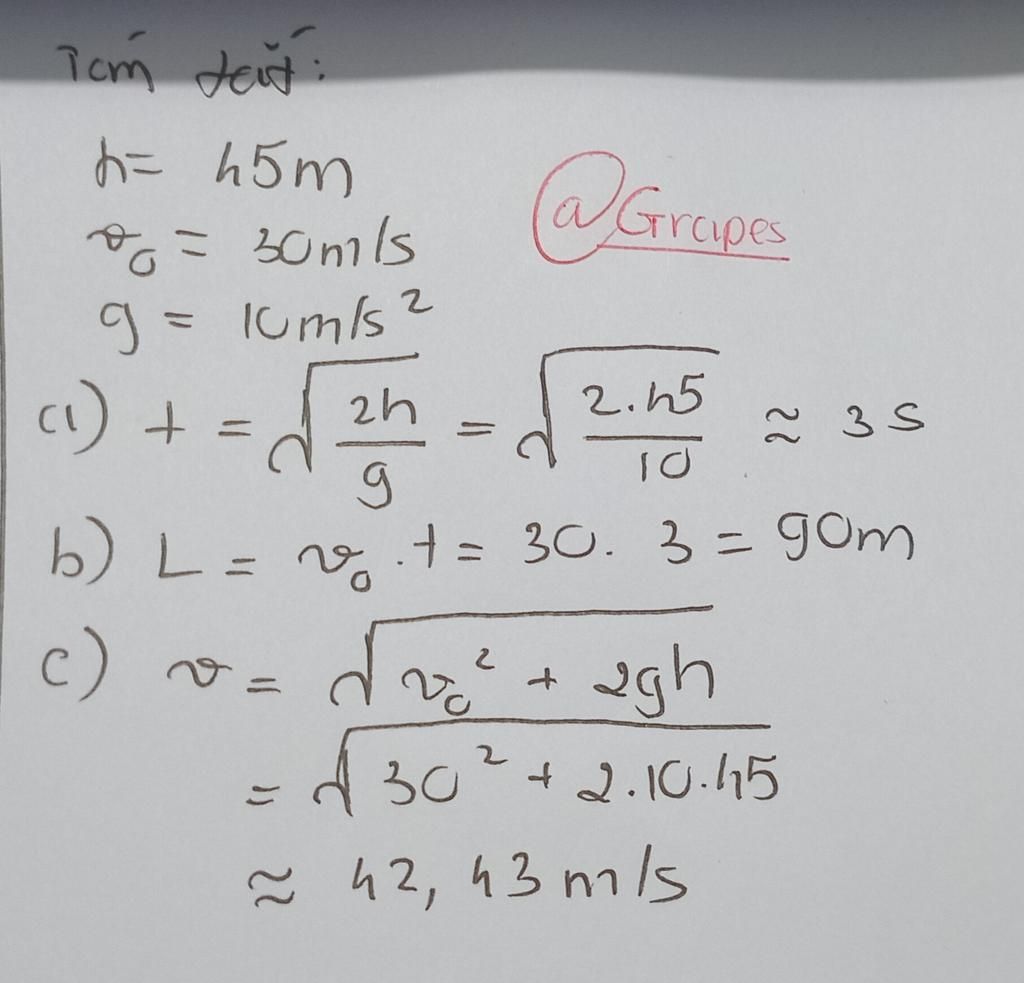 Tóm tắt:
h= 45m
@Grapes
v₀ = 30m/s
g = 10m/s²
a) t = √(2h/g) = √(2.45/10) ≈ 3s
b) L = v₀.t = 30. 3 = 90m
c) v = √(v₀² + 2gh)
= √(30² + 2.10.45)
≈ 42,43 m/s